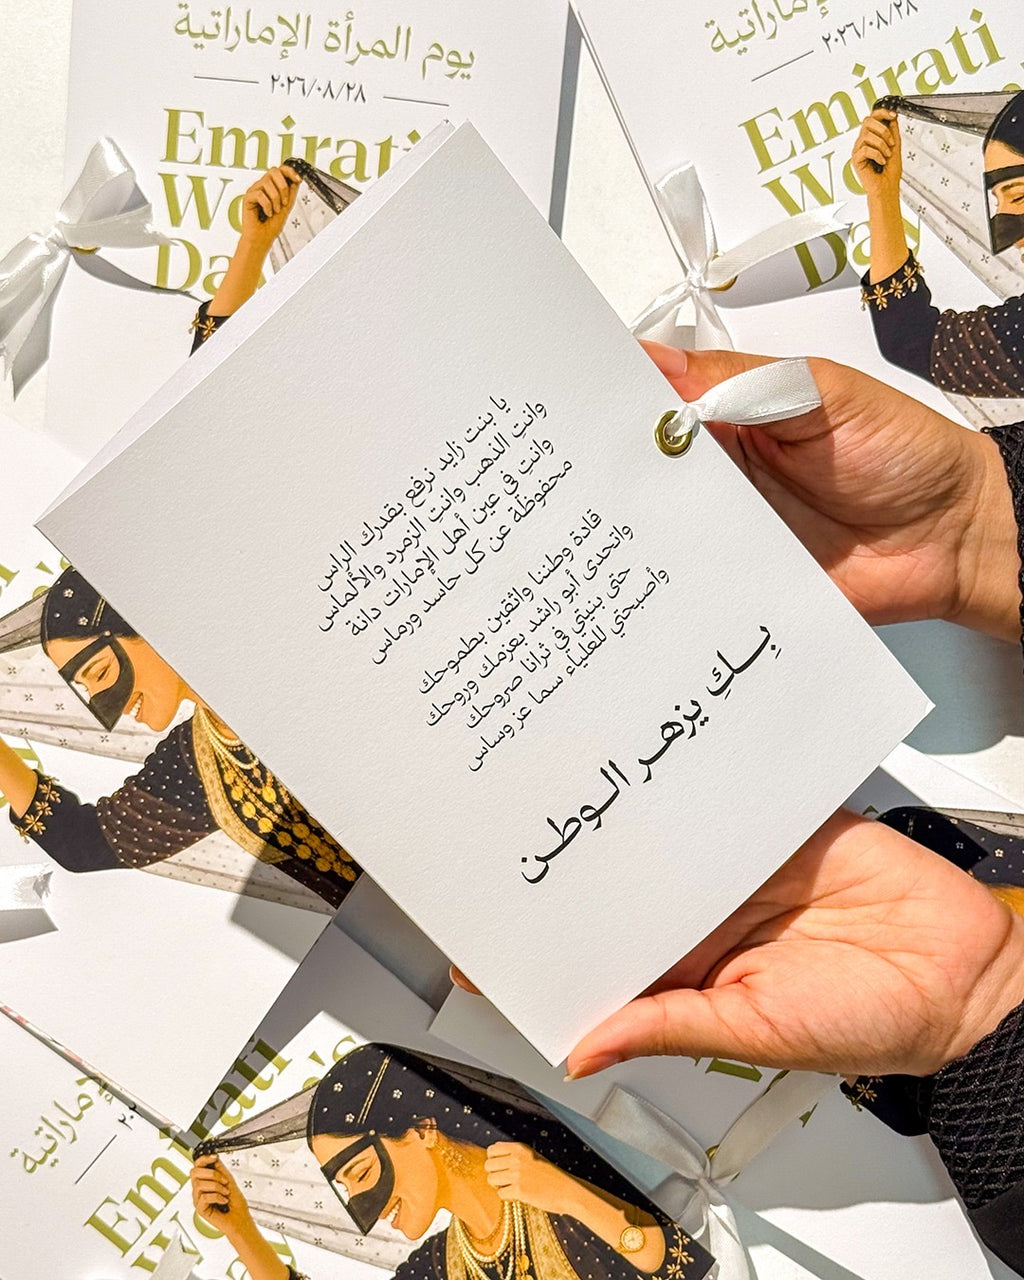 يوم المرأة الإماراتية
٢٠٢٦/٠٨/٢٨
Emirati
Wo
Da
الإماراتية
٢٠٢٦/٠٨/٢٨
Emirati
Wo
Day
يا بنت زايد نرفع بقدرك الراس
وانتِ الذهب وانتِ الزمرد والألماس
وانتِ في عين أهل الإمارات دانة
محفوظة عن كل حاسد ورماس
قادة وطننا واثقين بطموحك
واتحدى أبو راشد بعزمك وروحك
حتى بنيتي في ثرانا صروحك
وأصبحتي للعلياء سما عز وساس
بكِ يزهر الوطن
إماراتية
Emirati